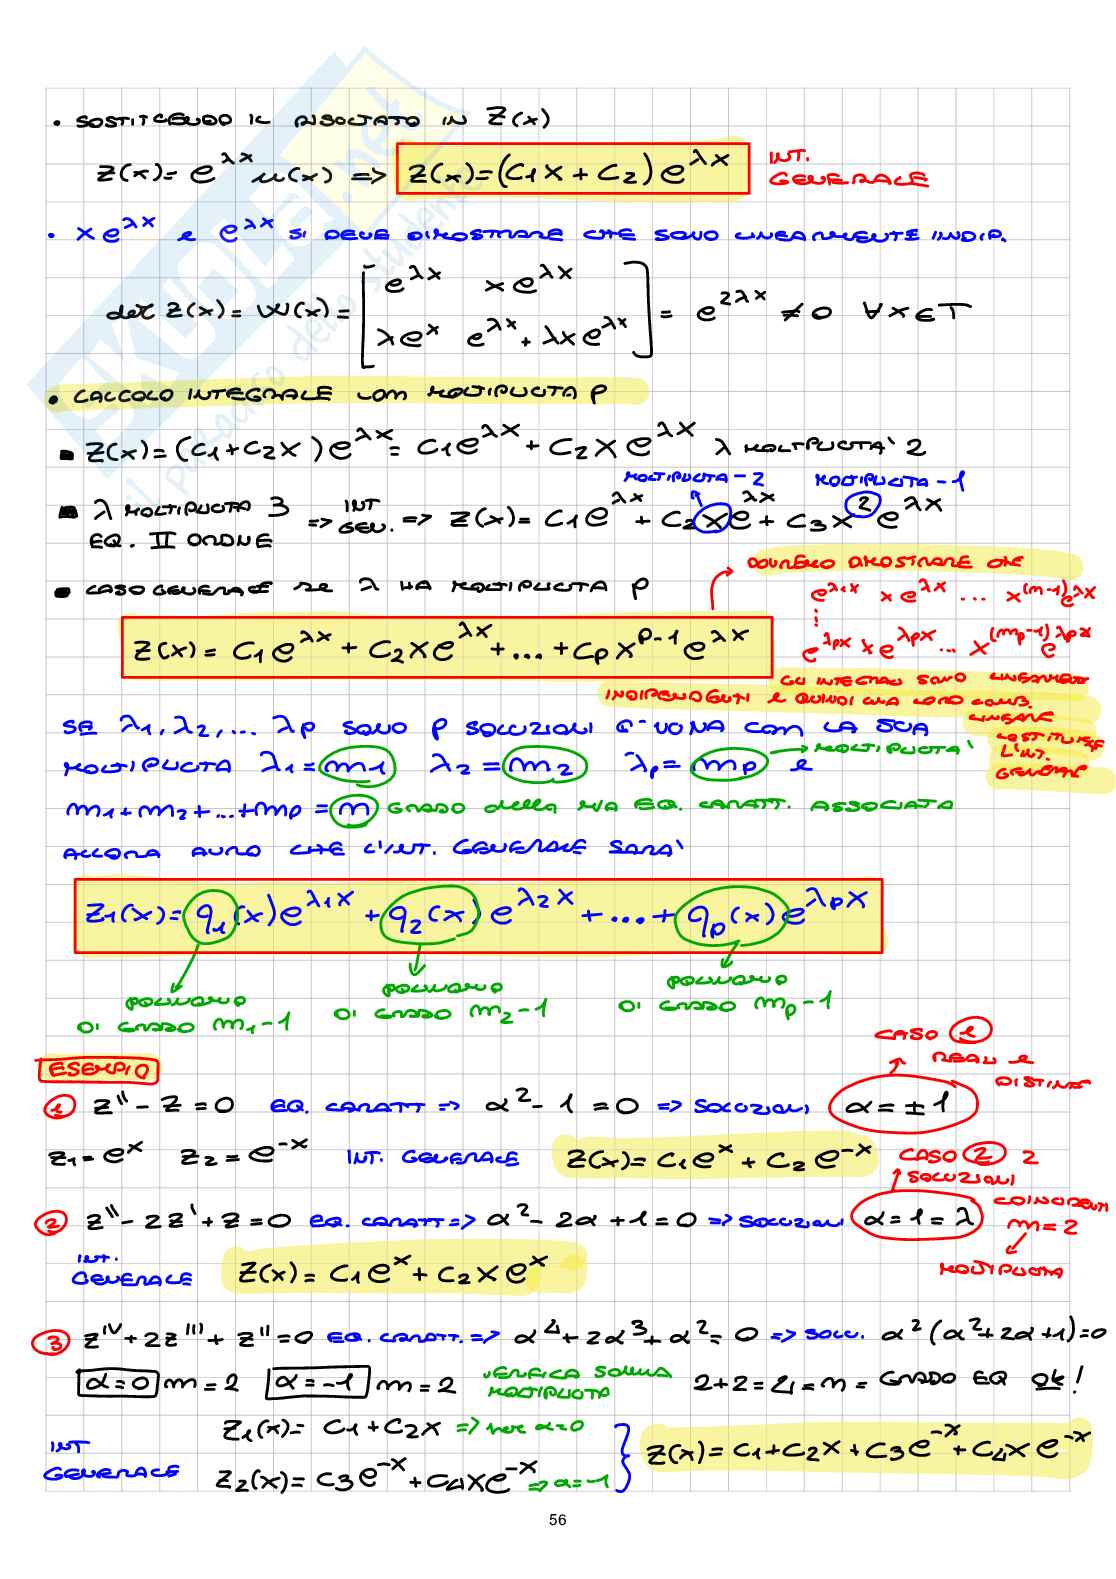 • SOSTITUENDO IL RISOLTATO IN Z(x)
Z(x) = e^{λx} u(x) => Z(x) = (C1X + C2) e^{λX} INT. GENERALE
• X e^{λX} e e^{λX} SI DEVE DIMOSTRARE CHE SONO LINEARMENTE INDIP.
det Z(x) = W(x) = [ e^{λx} x e^{λx}
λe^{x} e^{λx} + λx e^{λx} ] = e^{2λx} ≠ 0 ∀x∈T
• CALCOLO INTEGRALE CON MOLTIPLICITA P
▪ Z(x) = (C1 + C2X) e^{λX} = C1 e^{λX} + C2 X e^{λX} λ MOLTPLICITA' 2
MOLTIPLICITA - 2 MOLTIPLICITA - 1
▪ λ MOLTIPLICITA 3 => INT GEN. => Z(x) = C1 e^{λx} + C2 x e^{λx} + C3 x^{2} e^{λx}
EQ. II ORDNE
DOVREMO DIMOSTRARE CHE
▪ CASO GENERALE SE λ HA MOLTIPLICITA P
e^{λ1x} x e^{λx} ... x^{(m-1)} e^{λx}
⋮
Z(x) = C1 e^{λx} + C2 X e^{λx} + ... + CP X^{P-1} e^{λx}
e^{λpx} x e^{λpx} ... x^{(mp-1)} e^{λpx}
GLI INTEGRALI SONO LINEARMENTE
INDIPENDENTI E QUINDI UNA LORO COMB.
LINEARE
COSTITUISCE
L'INT.
GENERALE
SE λ1, λ2, ... λP SONO P SOLUZIONI OGNUNA CON LA SUA
MOLTIPLICITA λ1 = m1 λ2 = m2 λp = mp e → MOLTIPLICITA'
m1 + m2 + ... + mp = m GRADO della MIA EQ. CARATT. ASSOCIATA
ALLORA AVRO CHE L'INT. GENERALE SARA'
Z1(x) = q1(x) e^{λ1X} + q2(x) e^{λ2X} + ... + qp(x) e^{λpX}
POLINOMIO DI GRADO m1-1
POLINOMIO DI GRADO m2-1
POLINOMIO DI GRADO mp-1
ESEMPIO
CASO 1 REALI e DISTINT
1 Z'' - Z = 0 EQ. CARATT => α^{2} - 1 = 0 => SOLUZIONI α = ±1
Z1 = e^{x} Z2 = e^{-x} INT. GENERALE Z(x) = C1 e^{x} + C2 e^{-x}
CASO 2 2 SOLUZIONI COINCIDENTI m = 2 MOLTIPLICITA
2 Z'' - 2Z' + Z = 0 EQ. CARATT => α^{2} - 2α + 1 = 0 => SOLUZIONI α = 1 = λ
INT. GENERALE Z(x) = C1 e^{x} + C2 X e^{x}
3 Z^{IV} + 2Z^{III} + Z^{II} = 0 EQ. CARATT. => α^{4} + 2α^{3} + α^{2} = 0 => SOLU. α^{2}(α^{2} + 2α + 1) = 0
α = 0 m = 2 α = -1 m = 2 VERIFICA SOMMA MOLTIPLICITA 2+2 = 4 = m = GRADO EQ Ok!
INT GENERALE
Z1(x) = C1 + C2X => per α = 0
Z2(x) = C3 e^{-x} + C4 X e^{-x} => α = -1
Z(x) = C1 + C2X + C3 e^{-x} + C4 X e^{-x}
SKUOLA.net
il paradiso dello studente
56